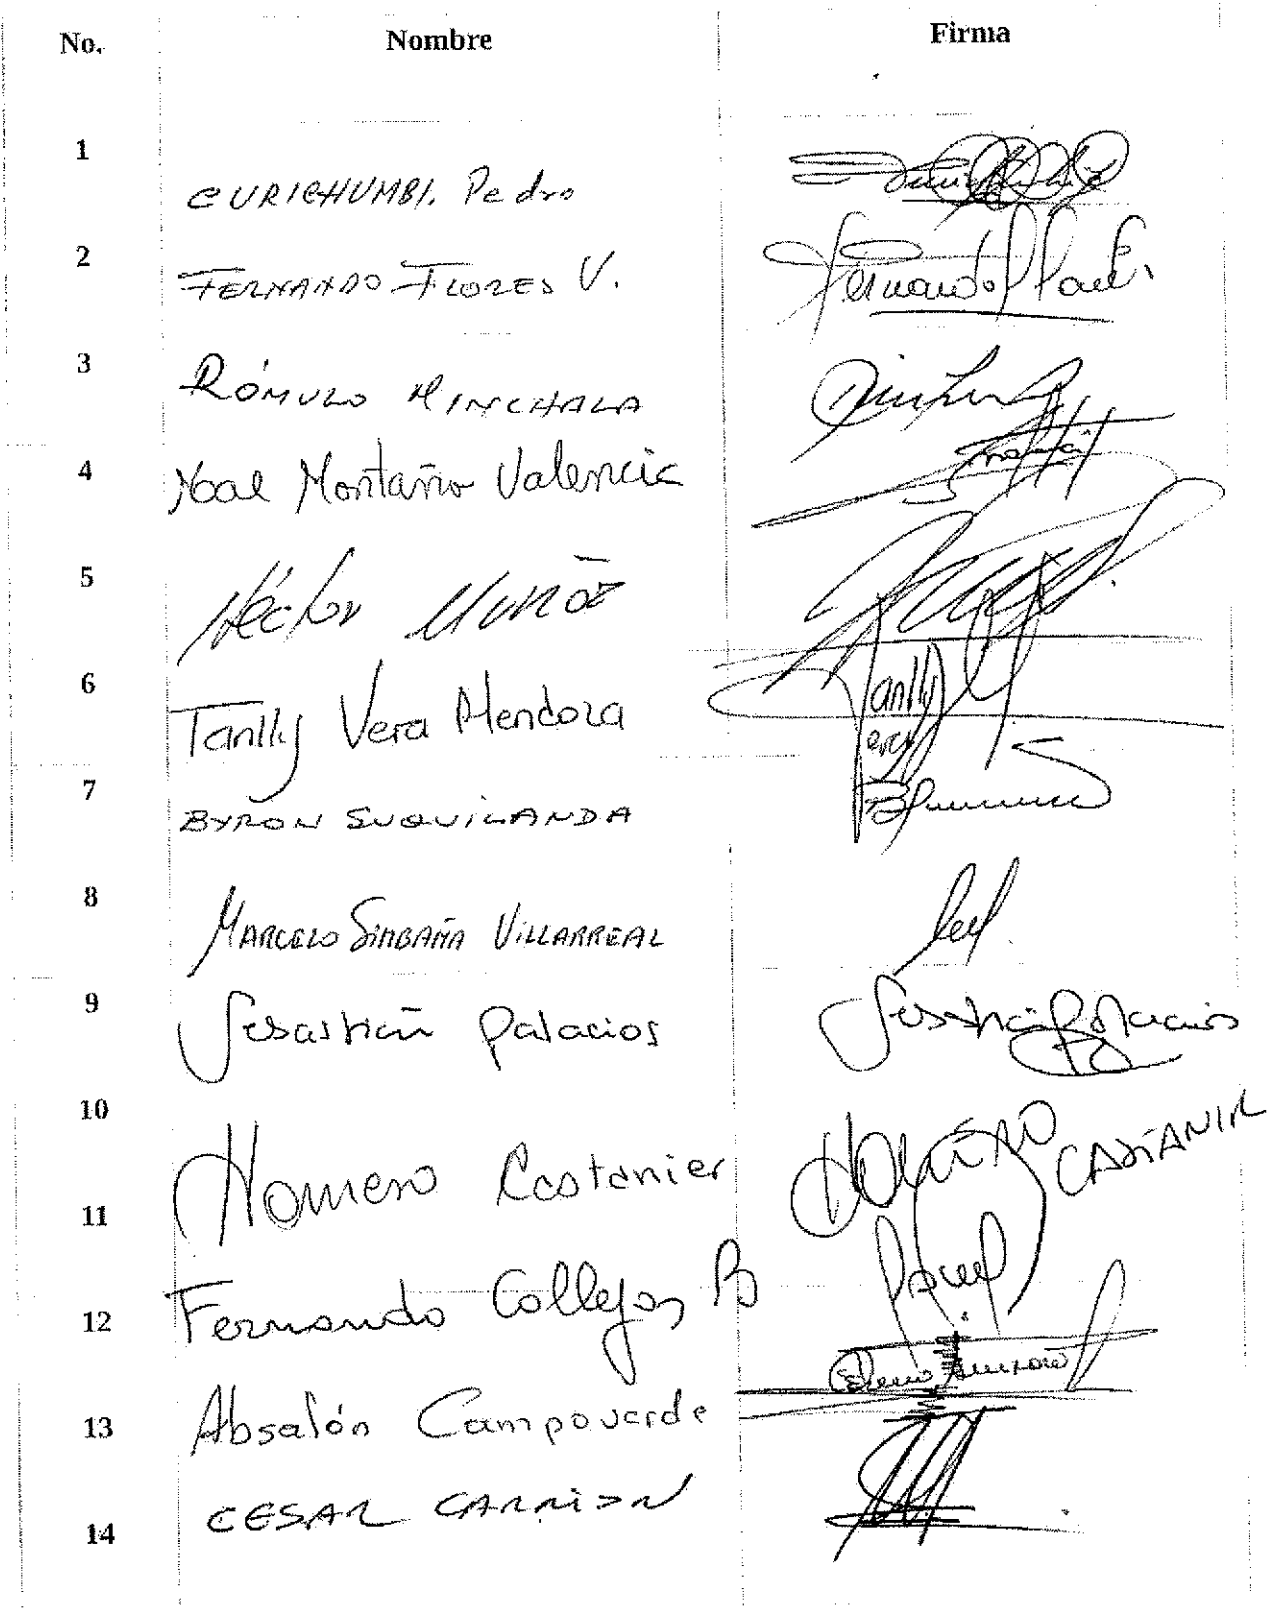 No. Nombre Firma
1
CURICHUMBI. Pedro
2
FERNANDO FLORES V. Fernando Flores
3
RÓMULO MINCHALA
4
Noal Montaño Valencia
5
Héctor Muñoz
6
Tanlly Vera Mendoza Tanlly Vera
7
BYRON SUQUILANDA
8
MARCELO SIMBAÑA VILLARREAL
9
Sebastián Palacios Sebastián Palacios
10
Homero Castanier
11
Fernando Callejas B
12
Absalón Campoverde
13
CESAR CARRION
14